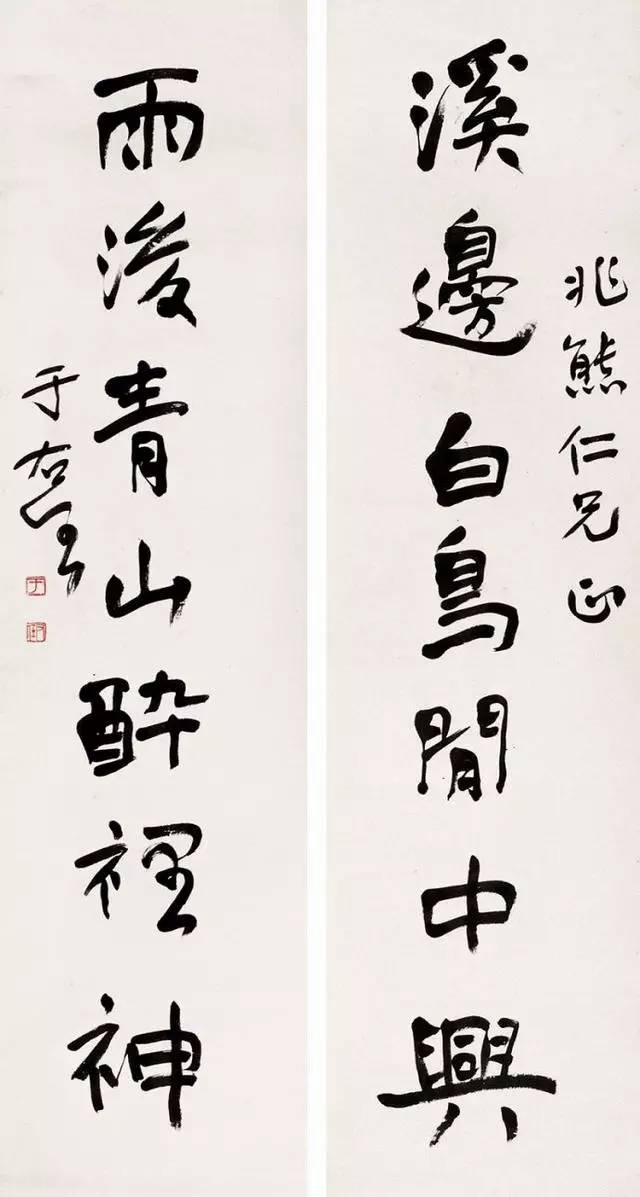 溪邊白鳥閒中興
兆熊仁兄正
雨後青山醉裡神
于右任